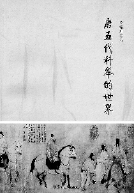 唐五代科舉的世界